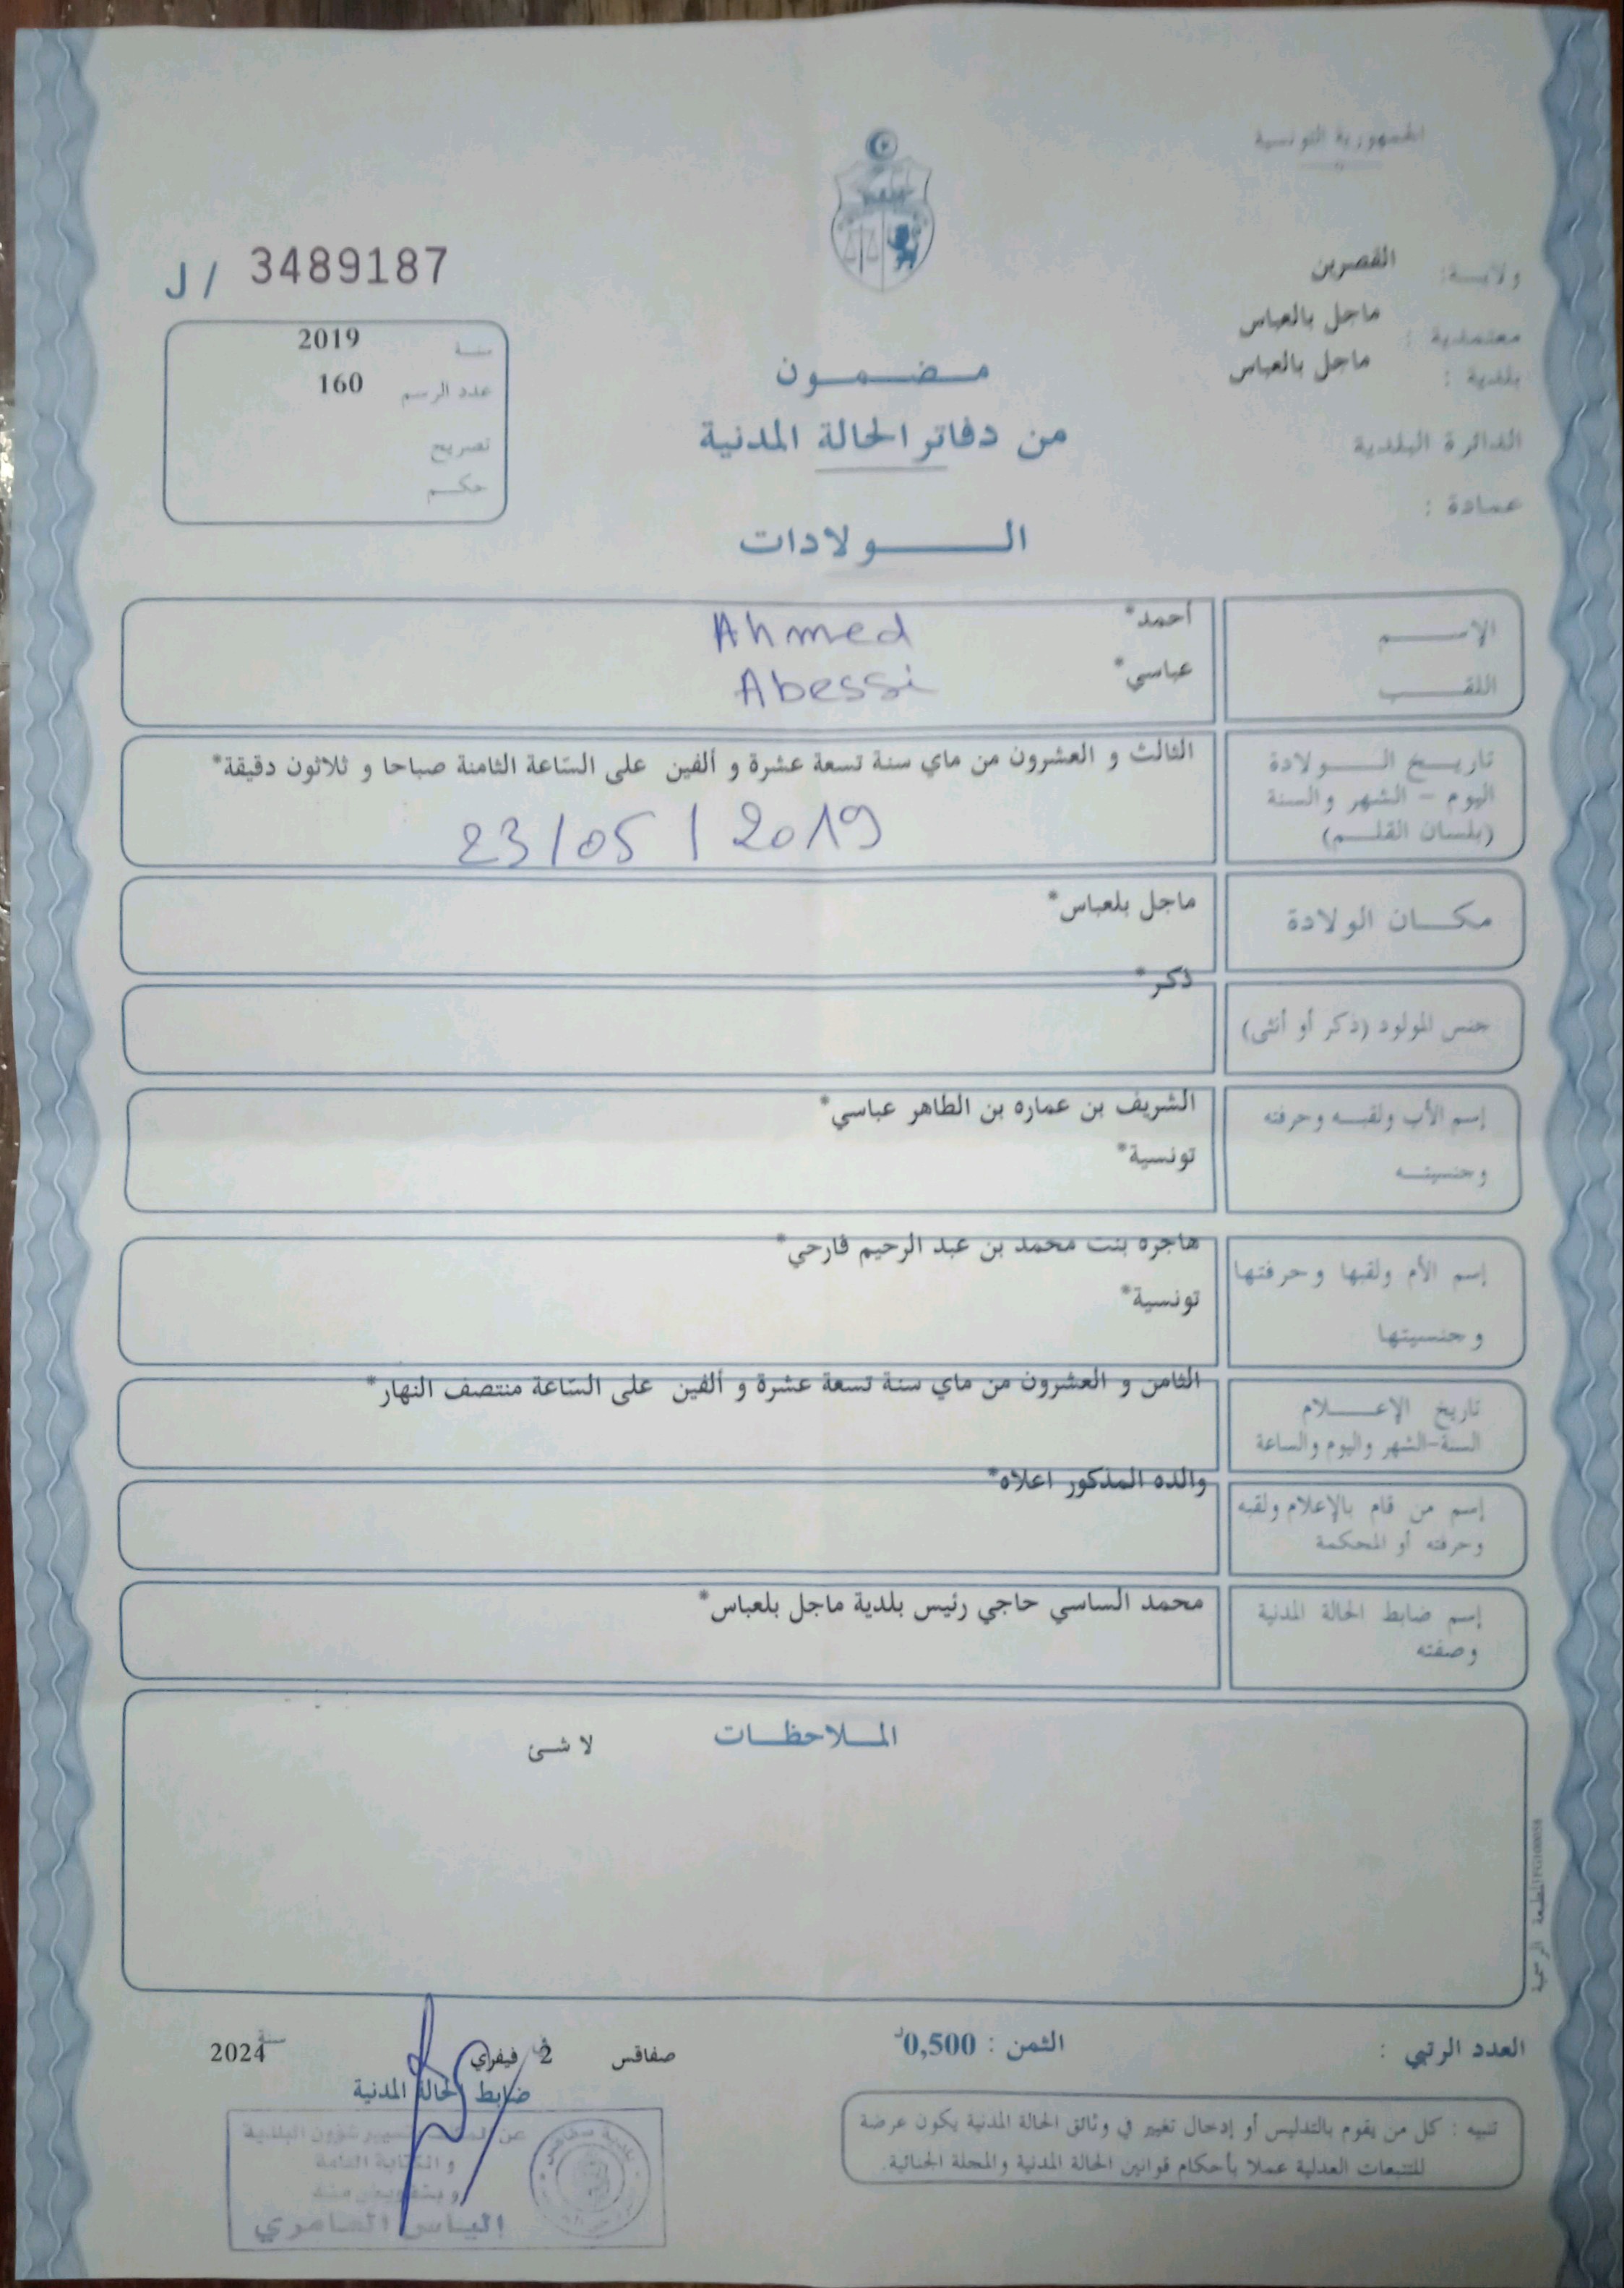 الجمهورية التونسية
ولاية: القصرين
معتمدية : ماجل بالعباس
بلدية : ماجل بالعباس
الدائرة البلدية
عمادة :
J / 3489187
سنة 2019
عدد الرسم 160
تصريح
حكم
مضمون
من دفاتر الحالة المدنية
الولادات
الإسم أحمد* Ahmed
اللقب عباسي* Abessi
تاريخ الولادة
اليوم - الشهر والسنة
(بلسان القلم)
الثالث و العشرون من ماي سنة تسعة عشرة و ألفين على السّاعة الثامنة صباحا و ثلاثون دقيقة*
23/05/2019
مكان الولادة ماجل بلعباس*
جنس المولود (ذكر أو أنثى) ذكر*
إسم الأب ولقبه وحرفته الشريف بن عماره بن الطاهر عباسي*
وجنسيته تونسية*
إسم الأم ولقبها وحرفتها هاجره بنت محمد بن عبد الرحيم فارحي*
وجنسيتها تونسية*
تاريخ الإعلام
السنة-الشهر واليوم والساعة
الثامن و العشرون من ماي سنة تسعة عشرة و ألفين على السّاعة منتصف النهار*
إسم من قام بالإعلام ولقبه
وحرفته أو المحكمة
والده المذكور اعلاه*
إسم ضابط الحالة المدنية
وصفته
محمد الساسي حاجي رئيس بلدية ماجل بلعباس*
الملاحظات
لا شئ
المطبعة الرسمية
العدد الرتبي :
الثمن : 0,500د
صفاقس في 2 فيفري سنة 2024
ضابط الحالة المدنية
تنبيه : كل من يقوم بالتدليس أو إدخال تغيير في وثائق الحالة المدنية يكون عرضة
للتتبعات العدلية عملا بأحكام قوانين الحالة المدنية والمجلة الجنائية.
بلدية صفاقس
شؤون البلدية
والكتابة العامة
وبتفويض منه
إلياس العامري